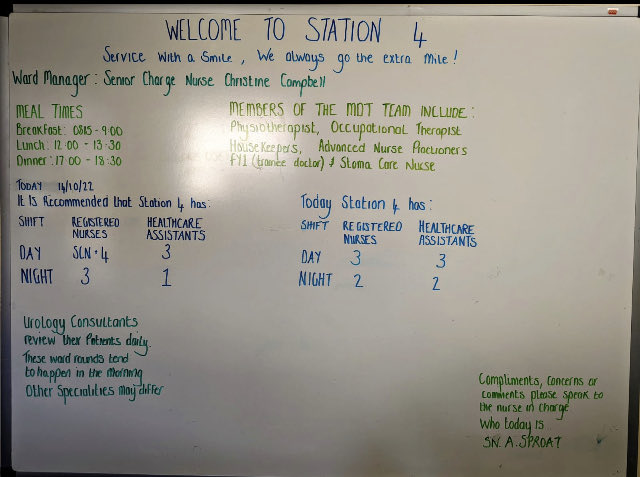 WELCOME TO STATION 4
Service with a Smile, We always go the extra Mile!
Ward Manager: Senior Charge Nurse Christine Campbell
MEAL TIMES
Breakfast: 0815-9:00
Lunch: 12:00 - 13:30
Dinner: 17:00 - 18:30
MEMBERS OF THE MDT TEAM INCLUDE:
Physiotherapist, Occupational Therapist
Housekeepers, Advanced Nurse Practioners
FY1 (trainee doctor) & Stoma Care Nurse
TODAY 14/10/22
It Is Recommended that Station 4 has:
SHIFT REGISTERED NURSES HEALTHCARE ASSISTANTS
DAY SCN + 4 3
NIGHT 3 1
Today Station 4 has:
SHIFT REGISTERED NURSES HEALTHCARE ASSISTANTS
DAY 3 3
NIGHT 2 2
Urology Consultants
review their Patients daily.
These ward rounds tend
to happen in the Morning
Other Specialities may differ
Compliments, Concerns or
comments please speak to
the nurse in Charge
Who today is
SN. A. SPROAT